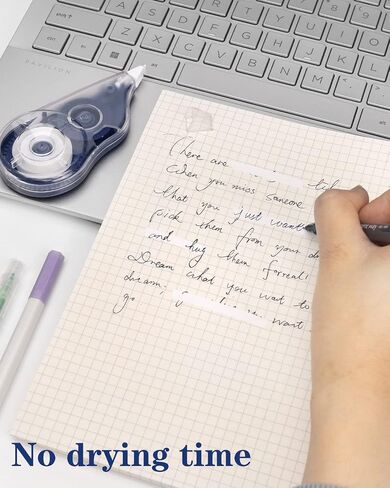 PAVILION
There are
When you miss someone
that you just want
pick them from your d
and hug them forreal!
Dream what you want to
dream;
go
want
No drying time